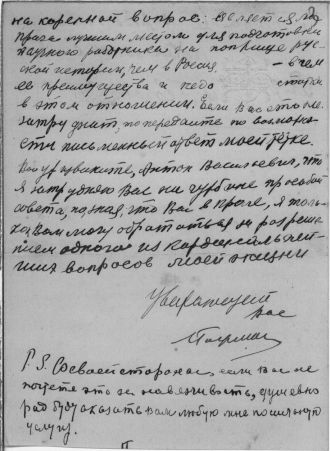 на коренной вопрос: является ли
Прага лучшим местом для подготовки
научного работника на поприще рус-
ской истории, чем в России, - в чем
ее преимущества и недо статки
в этом отношении. Если Вас это не
затруднит, то передайте по возможно-
сти письменный ответ моей тетке.
Антон Васильевич, что
я затрудняю Вас на чужбине просьбой
совета, но зная, что Вас в Праге, я толь-
ко к Вам могу обратиться за разреше-
нием одного из кардинальней-
ших вопросов моей жизни
Уважающий
Вас
P.S. Со своей стороны, если Вы не
почтете это за навязчивость, душевно
рад буду оказать Вам любую мне посильную
услугу.